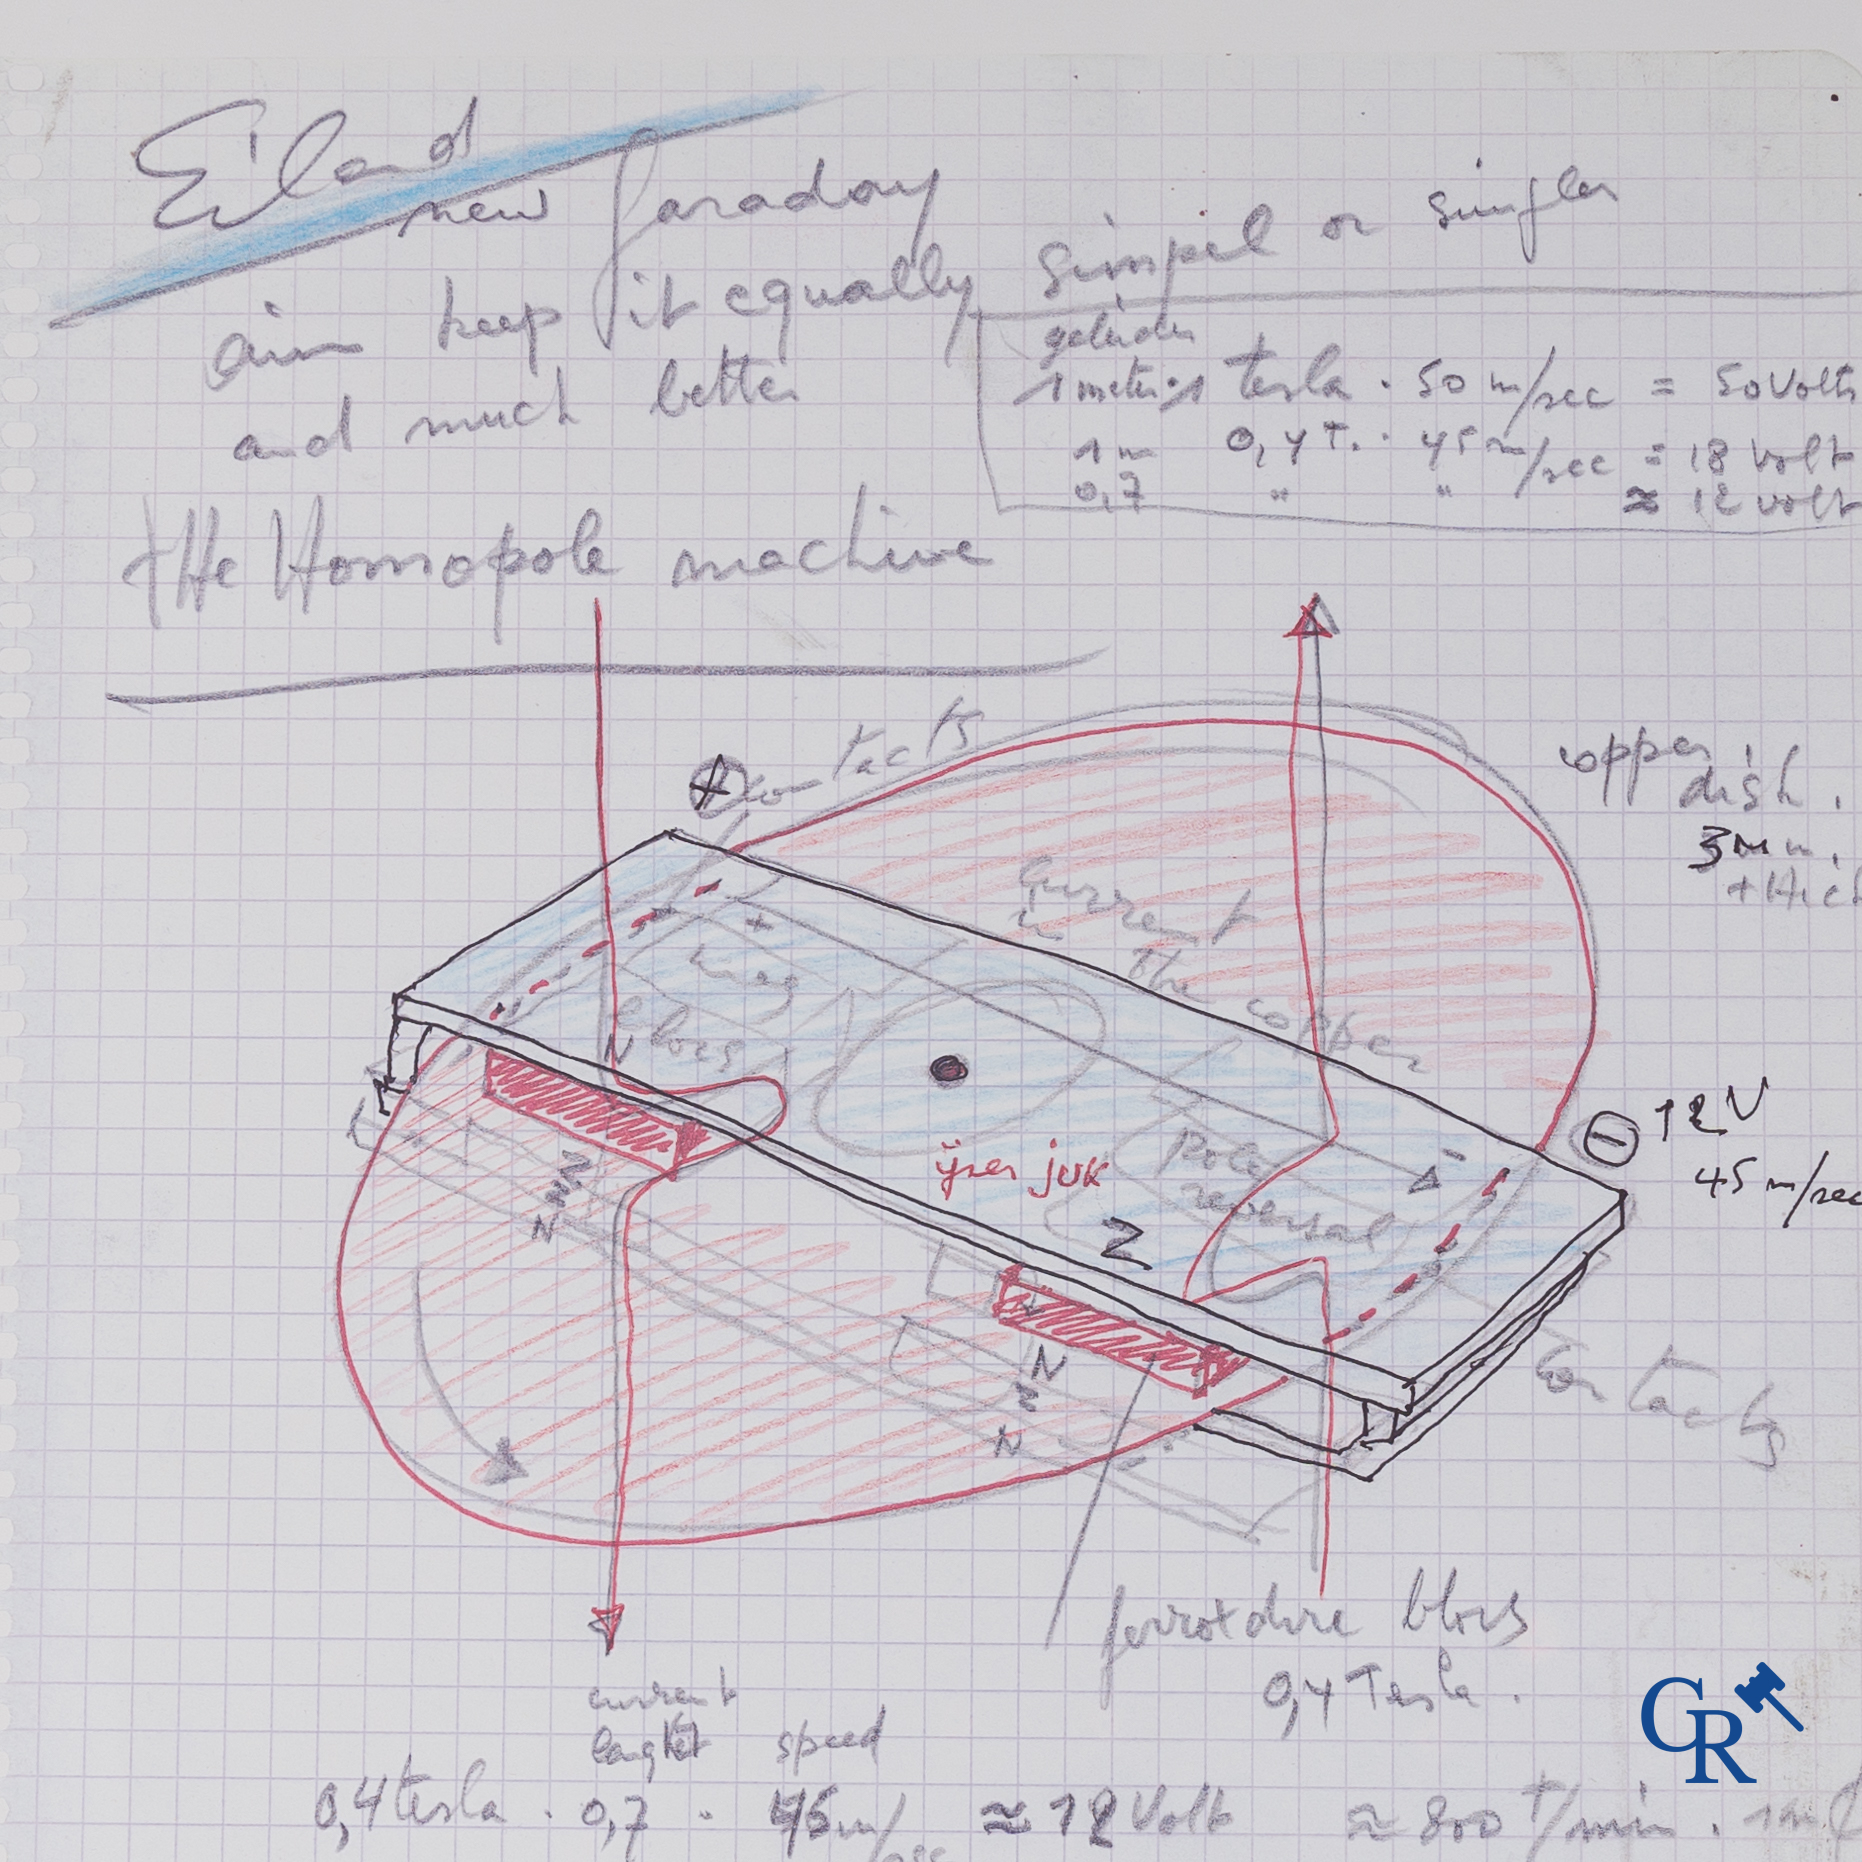 Eiland
new faraday
aim keep it equally simpel or simpler
and much better
geleider
1 meter . 1 tesla . 50 m/sec = 50 Volts
1 m 0,4 T. . 45 m/sec = 18 Volt
0,7 " " ≈ 12 volt
tHe Homopole machine
+ contacts
copper
dish.
3 mm.
tHick
current
in
the copper
+
mag
blocs
N
N
− 12 V
45 m/sec
ijzer juk
Pole
reversal
-
Z
N
N
N
N
Contacts
ferroxdure blocs
0,4 Tesla.
current
lenght speed
0,4 tesla . 0,7 . 45 m/sec ≈ 12 Volt ≈ 800 t/min . 1m
GR